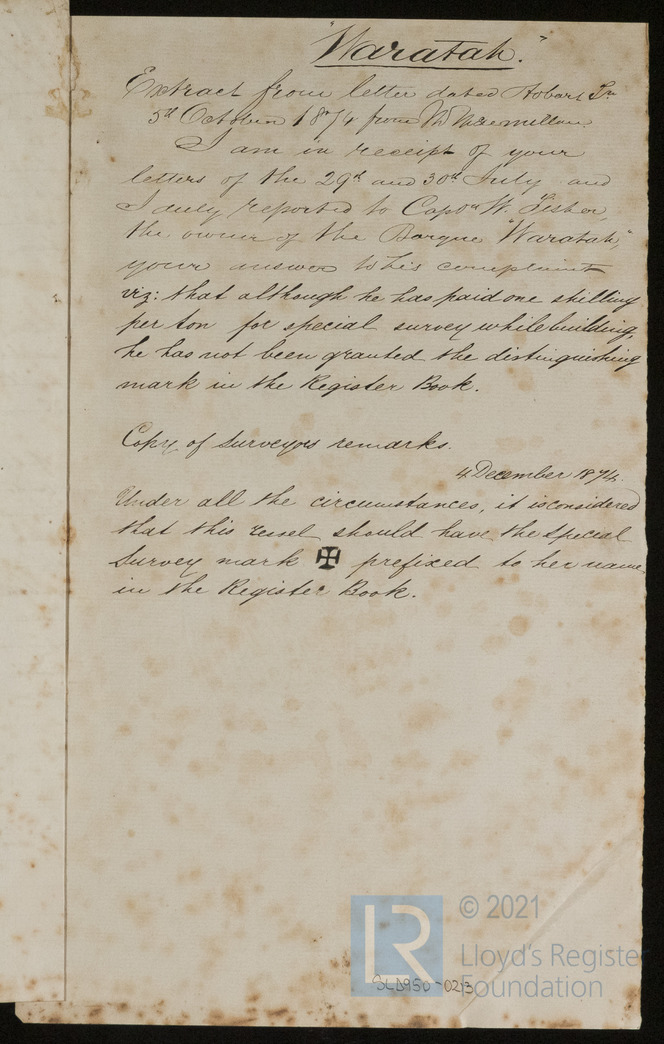 "Waratah."
Extract from letter dated Hobart Tn
5th October 1874 from Mr Macmillan
I am in receipt of your
letters of the 29th and 30th July and
I duly reported to Captn W. Fisher,
the owner of the Barque "Waratah",
your answer to his complaint
viz: that although he has paid one shilling
per ton for special survey while building,
he has not been granted the distinguishing
mark in the Register Book.
Copy of Surveyors remarks.
4 December 1874.
Under all the circumstances, it is considered
that this vessel should have the special
Survey mark ✠ prefixed to her name
in the Register Book.
© 2021
LR
Lloyd's Register
Foundation
SLD950-0213